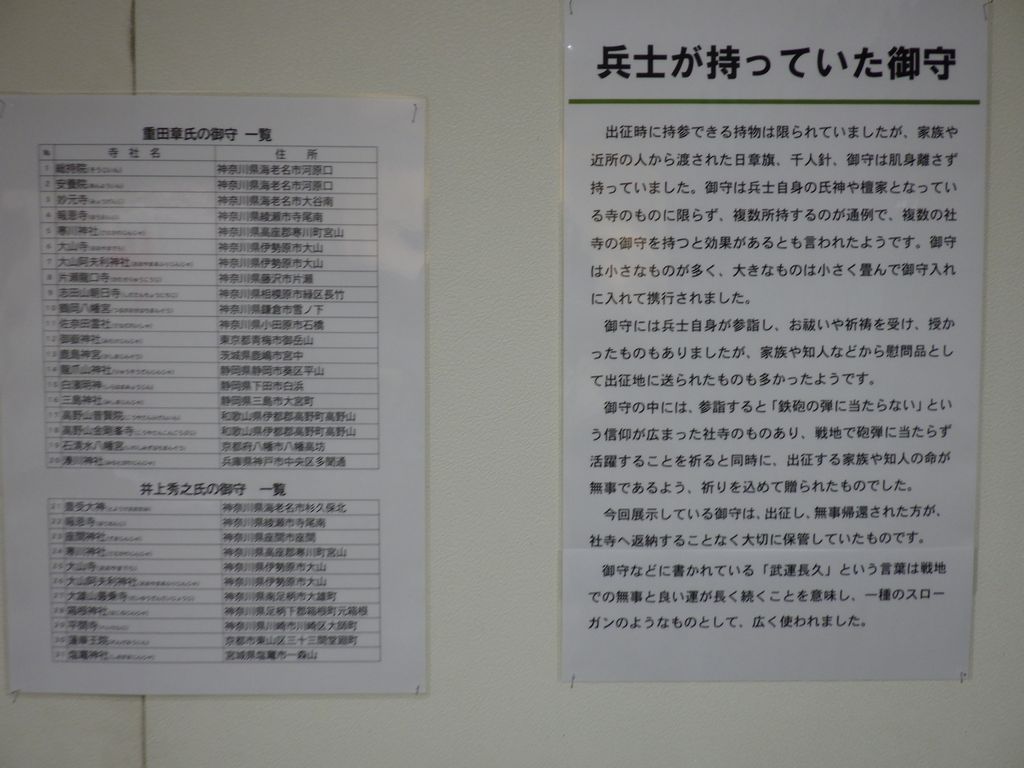 重田章氏の御守 一覧
№ 寺社名 住所
1 総持院 神奈川県海老名市河原口
2 安養院 神奈川県海老名市河原口
3 妙元寺 神奈川県海老名市大谷南
4 報恩寺 神奈川県綾瀬市寺尾南
5 寒川神社 神奈川県高座郡寒川町宮山
6 大山寺 神奈川県伊勢原市大山
7 大山阿夫利神社 神奈川県伊勢原市大山
8 片瀬龍口寺 神奈川県藤沢市片瀬
9 志田山朝日寺 神奈川県相模原市緑区長竹
10 鶴岡八幡宮 神奈川県鎌倉市雪ノ下
11 佐奈田霊社 神奈川県小田原市石橋
12 御嶽神社 東京都青梅市御岳山
13 鹿島神宮 茨城県鹿嶋市宮中
14 龍爪山神社 静岡県静岡市葵区平山
15 白濱明神 静岡県下田市白浜
16 三島神社 静岡県三島市大宮町
17 高野山普賢院 和歌山県伊都郡高野町高野山
18 高野山金剛峯寺 和歌山県伊都郡高野町高野山
19 石清水八幡宮 京都府八幡市八幡高坊
20 湊川神社 兵庫県神戸市中央区多聞通
井上秀之氏の御守 一覧
21 豊受大神 神奈川県海老名市杉久保北
22 報恩寺 神奈川県綾瀬市寺尾南
23 座間神社 神奈川県座間市座間
24 寒川神社 神奈川県高座郡寒川町宮山
25 大山寺 神奈川県伊勢原市大山
26 大山阿夫利神社 神奈川県伊勢原市大山
27 大雄山最乗寺 神奈川県南足柄市大雄町
28 箱根神社 神奈川県足柄下郡箱根町元箱根
29 平間寺 神奈川県川崎市川崎区大師町
30 蓮華王院 京都市東山区三十三間堂廻町
31 塩竈神社 宮城県塩竈市一森山
兵士が持っていた御守
出征時に持参できる持物は限られていましたが、家族や
近所の人から渡された日章旗、千人針、御守は肌身離さず
持っていました。御守は兵士自身の氏神や檀家となってい
る寺のものに限らず、複数所持するのが通例で、複数の社
寺の御守を持つと効果があるとも言われたようです。御守
は小さなものが多く、大きなものは小さく畳んで御守入れ
に入れて携行されました。
御守には兵士自身が参詣し、お祓いや祈祷を受け、授か
ったものもありましたが、家族や知人などから慰問品とし
て出征地に送られたものも多かったようです。
御守の中には、参詣すると「鉄砲の弾に当たらない」とい
う信仰が広まった社寺のものあり、戦地で砲弾に当たらず
活躍することを祈ると同時に、出征する家族や知人の命が
無事であるよう、祈りを込めて贈られたものでした。
今回展示している御守は、出征し、無事帰還された方が、
社寺へ返納することなく大切に保管していたものです。
御守などに書かれている「武運長久」という言葉は戦地
での無事と良い運が長く続くことを意味し、一種のスロー
ガンのようなものとして、広く使われました。